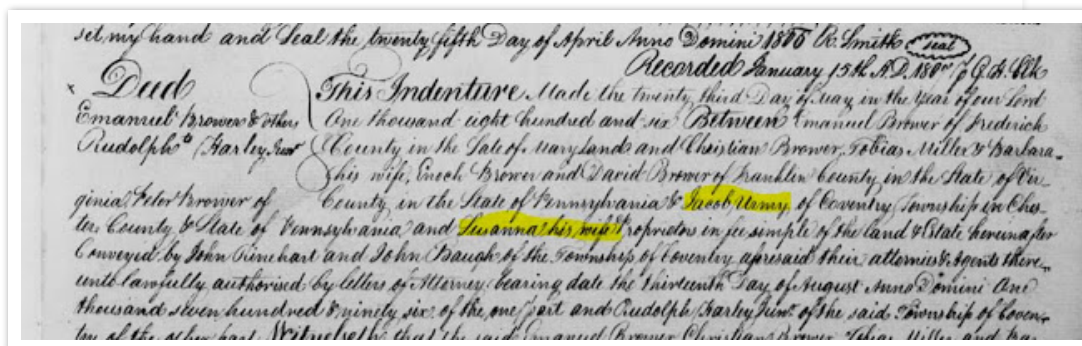 set my hand and Seal the twenty fifth Day of April Anno Domini 1806 R. Smith seal
Recorded January 15th A.D. 180
Deed
Emanuel Brower & others
to
Rudolph Harley Junr
This Indenture Made the twenty third Day of May in the Year of our Lord
One thousand eight hundred and six Between Emanuel Brower of Frederick
County in the State of Maryland and Christian Brower, Tobias Miller & Barbara
his wife, Enoch Brower and David Brower of Franklin County in the State of Vir-
ginia Peter Brower of County in the State of Pennsylvania & Jacob Urmy of Coventry Township in Ches-
ter County & State of Pennsylvania and Susanna his wife Proprietors in fee simple of the land & Estate hereinafter
Conveyed by John Rinehart and John Baugh of the Township of Coventry aforesaid their attornies & Agents there-
unto lawfully authorised by letters of Attorney bearing date the thirteenth Day of August Anno Domini One
thousand seven hundred & ninety six of the one part and Rudolph Harley Junr. of the said Township of Coven-
try of the other part Witnesseth that the said Emanuel Brower Christian Brower Tobias Miller and Bar-